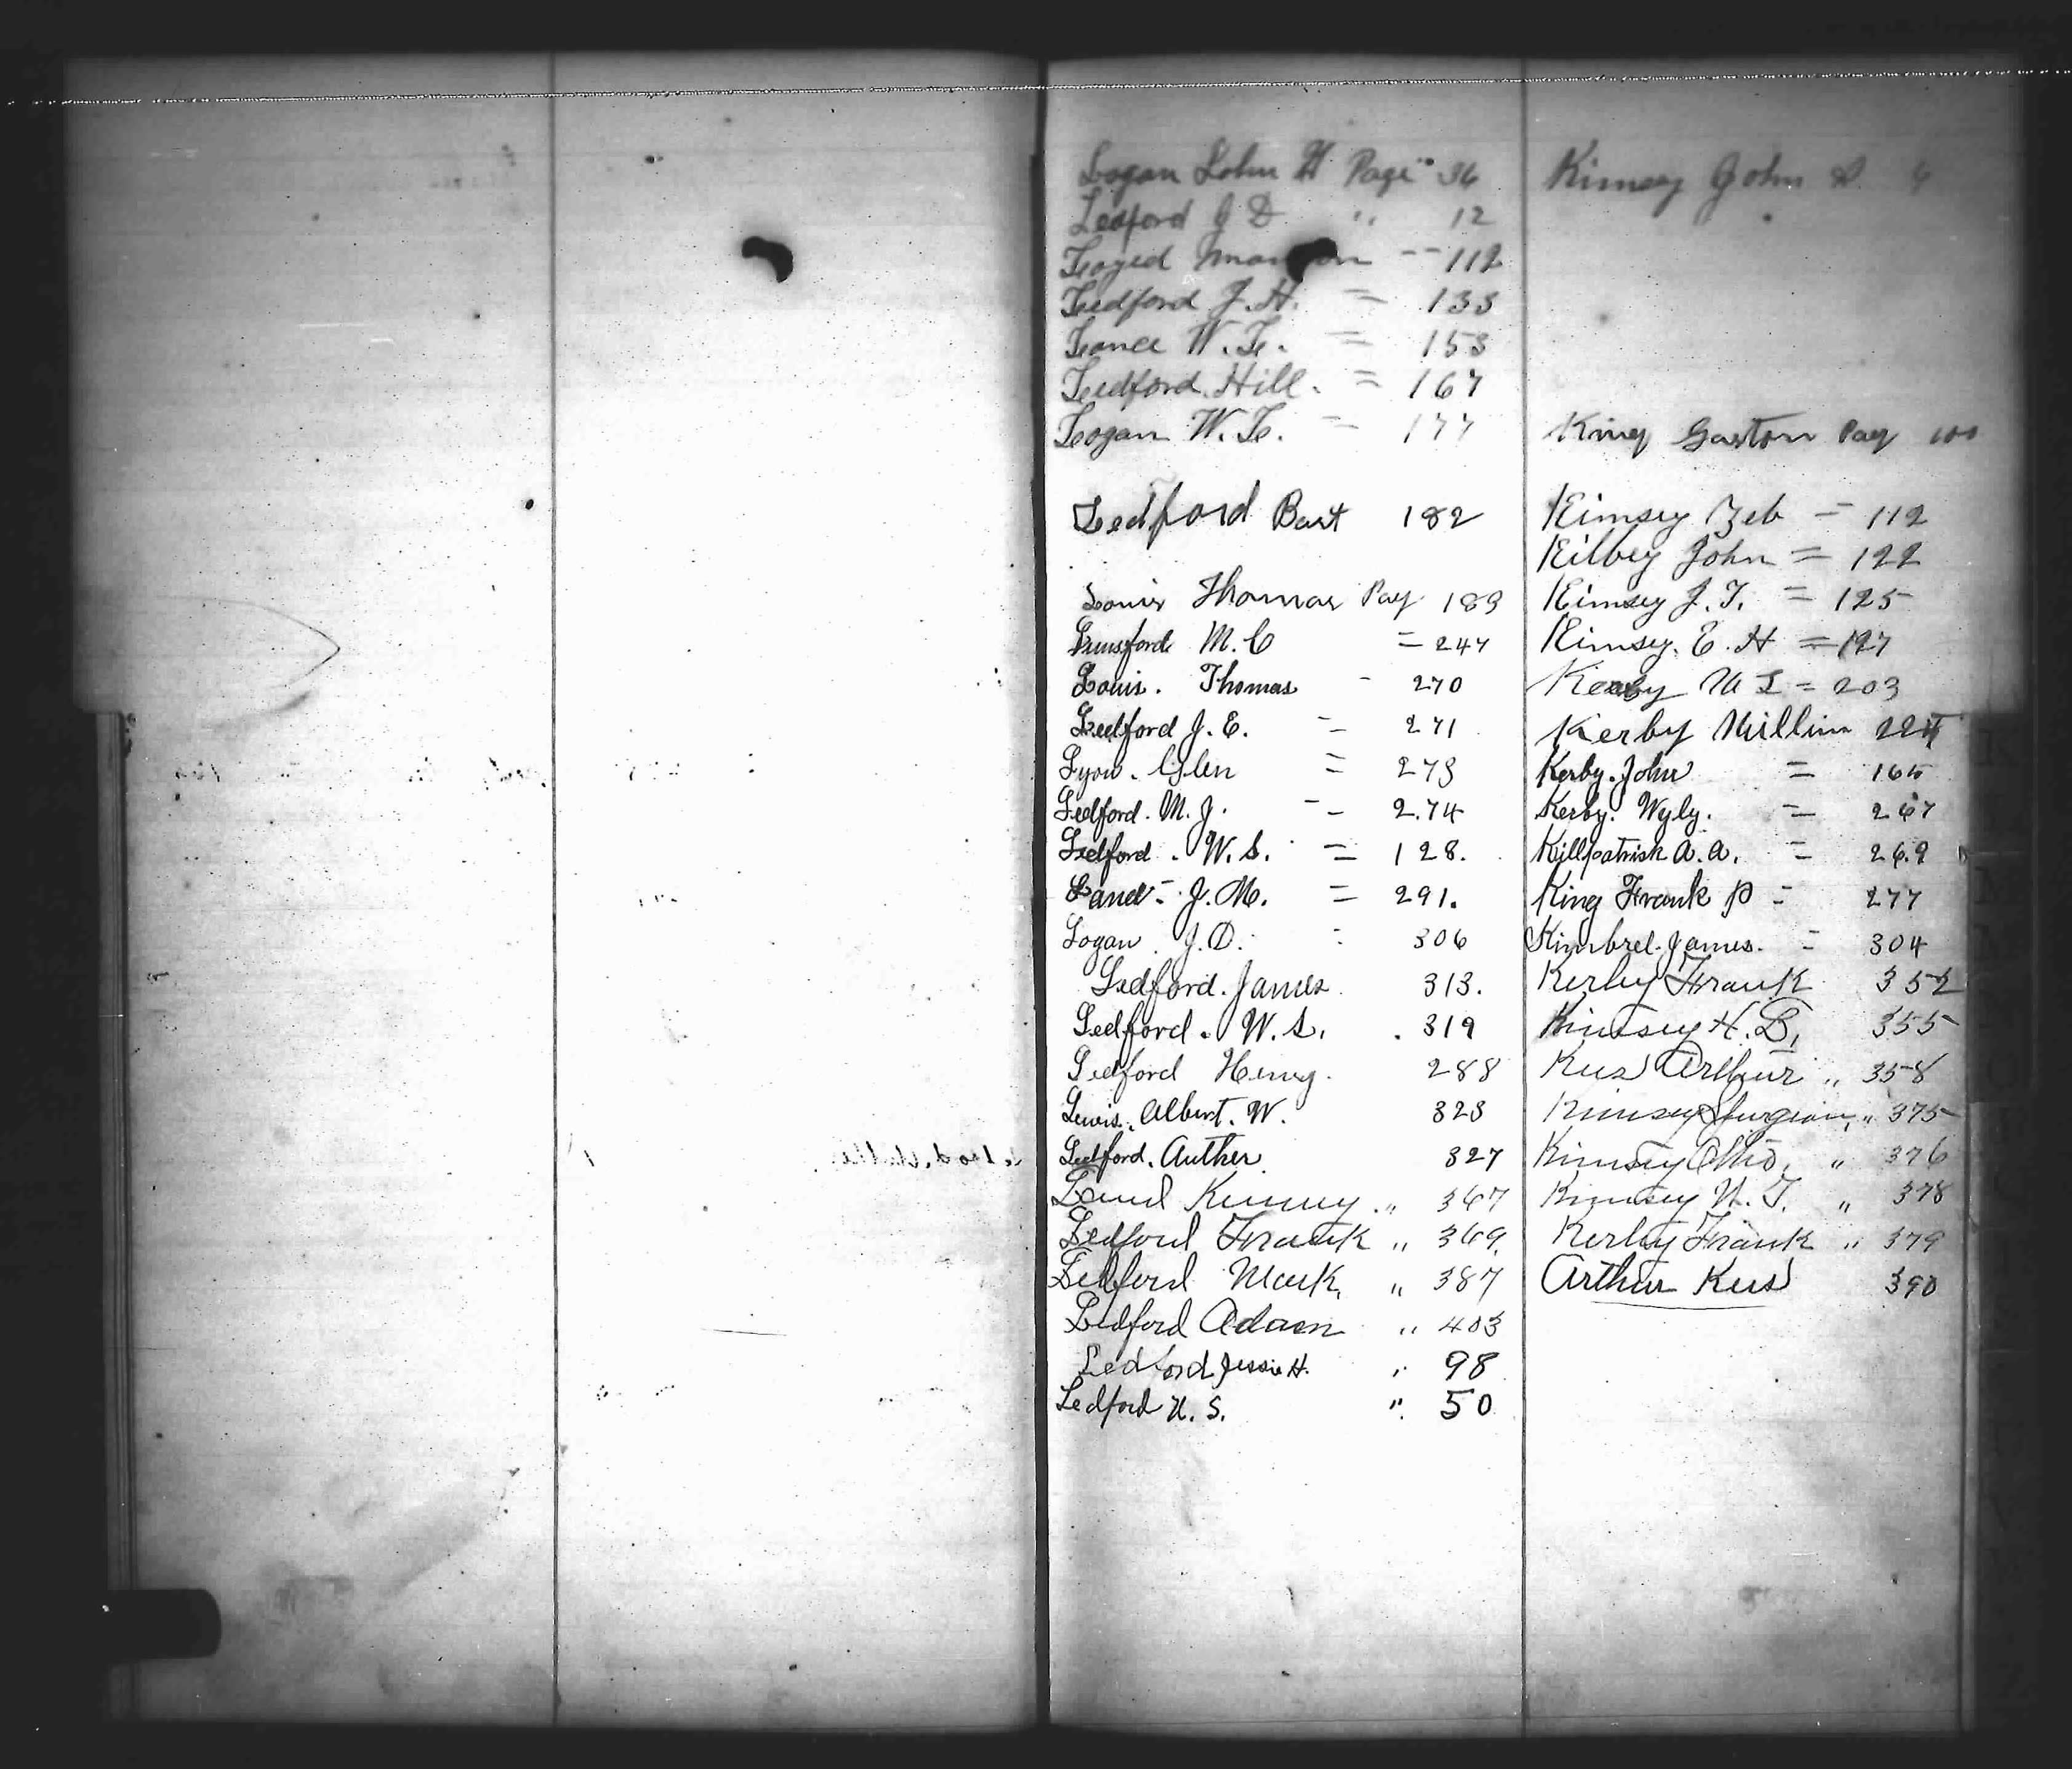 Logan John H Page 36
Ledford J D " 12
Loyed -- 112
Ledford J. H. = 133
Lance W. L. = 153
Ledford Hill. = 167
Logan W. L. = 177
Ledford Bart 182
Louis Thomas Pag 189
Lunsford M. C = 247
Louis. Thomas - 270
Ledford J. E. = 271
Lyon. Glen = 273
Ledford. M. J. = 274
Ledford. W. S. = 128.
Land - J. M. = 291.
Logan J. D. : 306
Ledford. James 313.
Ledford. W. S. . 319
Ledford Henry. 288
Lewis. Albert. W. 323
Ledford. Auther 327
Land Kimmy. " 367
Ledford Frank " 369.
Ledford Mark, " 387
Ledford Adam " 403
Ledford Jessie H. " 98
Ledford U. S. " 50
Kimsey John
King Gaston Pag 100
Kimsey Zeb = 112
Kilbey John = 122
Kimsey J. T. = 125
Kimsey. E. H = 127
= 203
Kerby 224
Kerby. John = 165
Kerby. Wyly. = 267
Killpatrick A. A. = 269
King Frank P = 277
Kimbrel. James. = 304
Kerby Frank 352
Kimsey H. B. 355
Kus Arthur " 358
Kimsey " 375
Kimsey Ohio, " 376
Kimsey " 378
Kerby Frank " 379
Arthur Kus 390